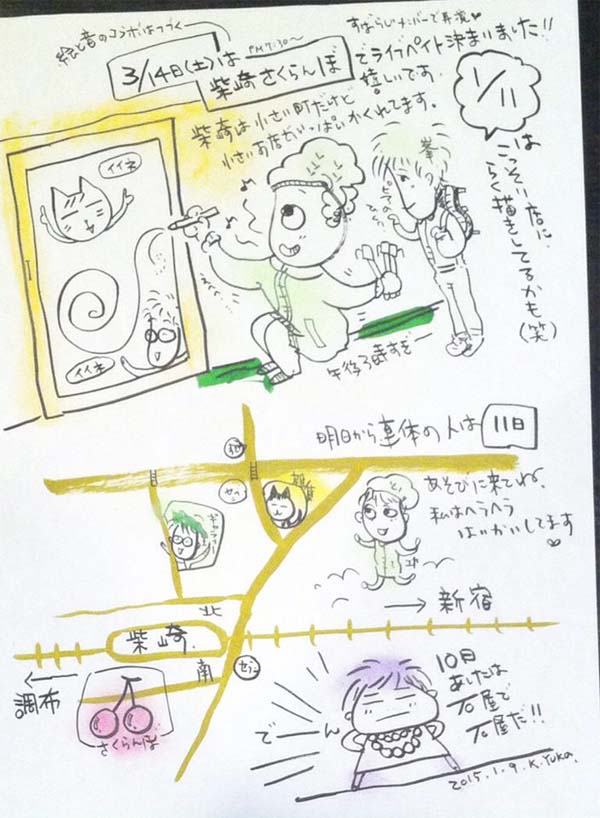 絵と音のコラボはつづく
すばらしいメンバーで再演♥
3/14日(土)は PM7:30〜
柴崎さくらんぼ
でライブペイント決まりました!!
嬉しいです.
柴崎は小さい町だけど
小さいお店がいっぱいかくれてます.
1/11
は
こっそり店に
らく描きしてるかも
(笑)
イイネ
イイネ
峯
午後3時すぎ
明日から連休の人は 11日
あそびに来てね.
私はヘラヘラ
はいかいしてます
♥
セブン
ギャラリー
北
柴崎
南
セブン
→ 新宿
← 調布
さくらんぼ
でーん
10日
あしたは
石屋で
石屋だ!!
2015.1.9.K.Yuka.